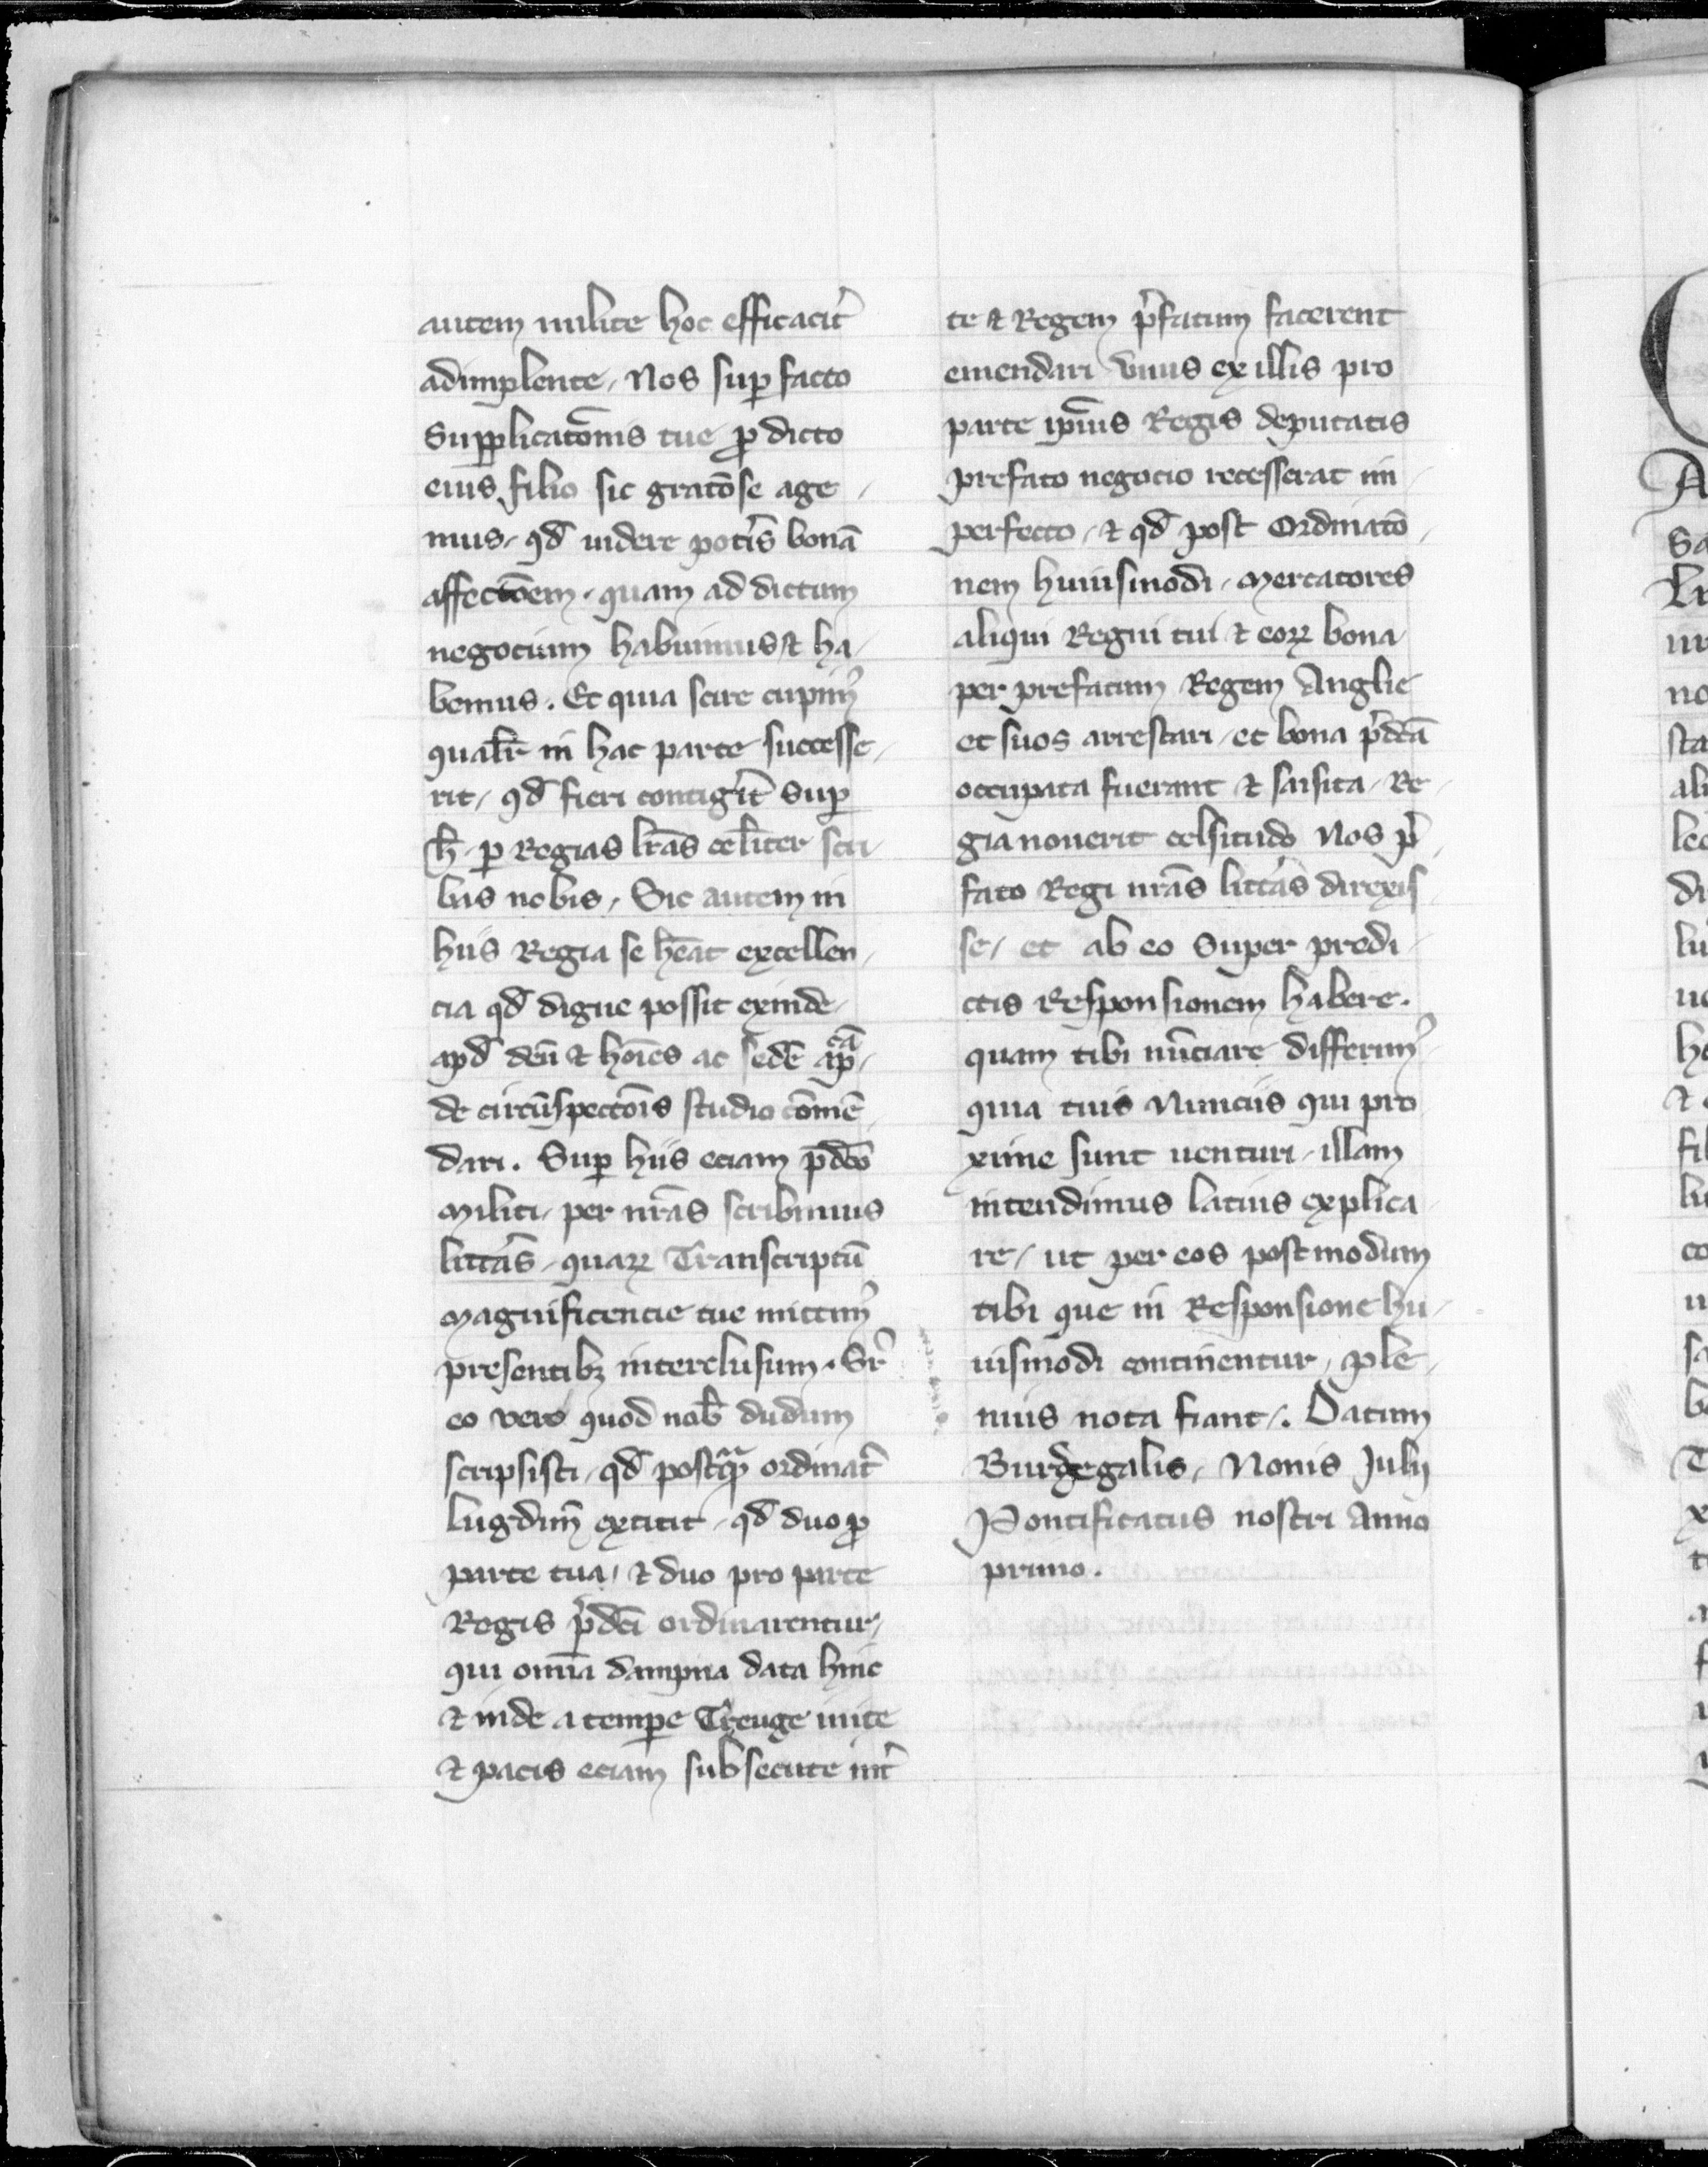 autem milite hoc efficacit᷑
adimplente, Nos suꝑ facto
Supplicatōnis tue ꝓ dicto
eius filio sic gratōse age
mus, qd̄ uidere potis̄ bonā
affectōem. quam ad dictum
negocium habuimus ⁊ ha
bemus. Et quia scire cupimꝰ
qualr̄ in hac parte successe
rit, qd̄ fieri contig̾it Suꝑ
h̄. ꝑ Regias lr̄as cel̄iter scri
bas nobis, Sic autem in
hiis Regia se hēat excellen
cia qd̄ digne possit exinde
apd̄ deū ⁊ hoīes ac sedē apᷓcā
de circūspectōis studio cōmē
dari. Suꝑ hiis eciam p̄dc̄o
militi, per nr̄as scribimus
litt̄as, quaꝝ Transcriptū
magnificencie tue mittimꝰ
presentibꝫ interclusum. Sr̄
eo vero quod nob̄ dudum
scripsisti, qd̄ postqᷓꝫ ordinat̄
lugdun̄ extitit, qd̄ duo ꝓ
parte tua, ⁊ duo pro parte
Regis p̄dc̄i ordinarentur,
qui om̄ia dampna data hinc
⁊ inde a temꝑe Treuge inite
⁊ pacis eciam subsecute int̄
te ⁊ Regem p̄fatum facerent
emendari Vnus ex illis pro
parte ip̄ius Regis deputatis
prefato negocio recesserat im
perfecto, ⁊ qd̄ post Ordinatō
nem huiusmodi, mercatores
aliqui Regni tui ⁊ eoꝝ bona
per prefatum Regem Anglie
et suos arrestari, et bona p̄dc̄ā
occupata fuerant ⁊ saisita, Re
gia nouerit celsitudo Nos p̄
fato Regi nr̄as litt̄as direxis
se, et ab eo Super predi
ctis Responsionem habere.
quam tibi nūciare differimꝰ
quia tuis Nunciis qui pro
xime sunt uenturi, illam
intendimus latius explica
re, ut per eos postmodum
tibi que in Responsione hu
iusmodi continentur, ple
nius nota fiant. Datum
Burdegalis, Nonis Julij
Pontificatus nostri Anno
primo.